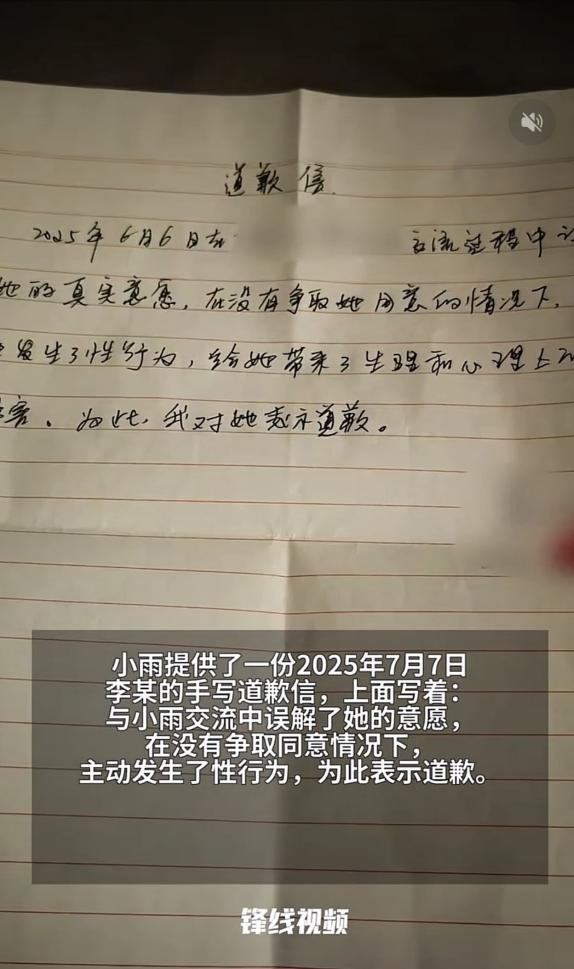 道歉信
2025年6月6日在
交流过程中
她的真实意愿，在没有争取她同意的情况下，
发生了性行为，给她带来了生理和心理上
害。为此，我对她表示道歉。
小雨提供了一份2025年7月7日
李某的手写道歉信，上面写着：
与小雨交流中误解了她的意愿，
在没有争取同意情况下，
主动发生了性行为，为此表示道歉。
锋线视频